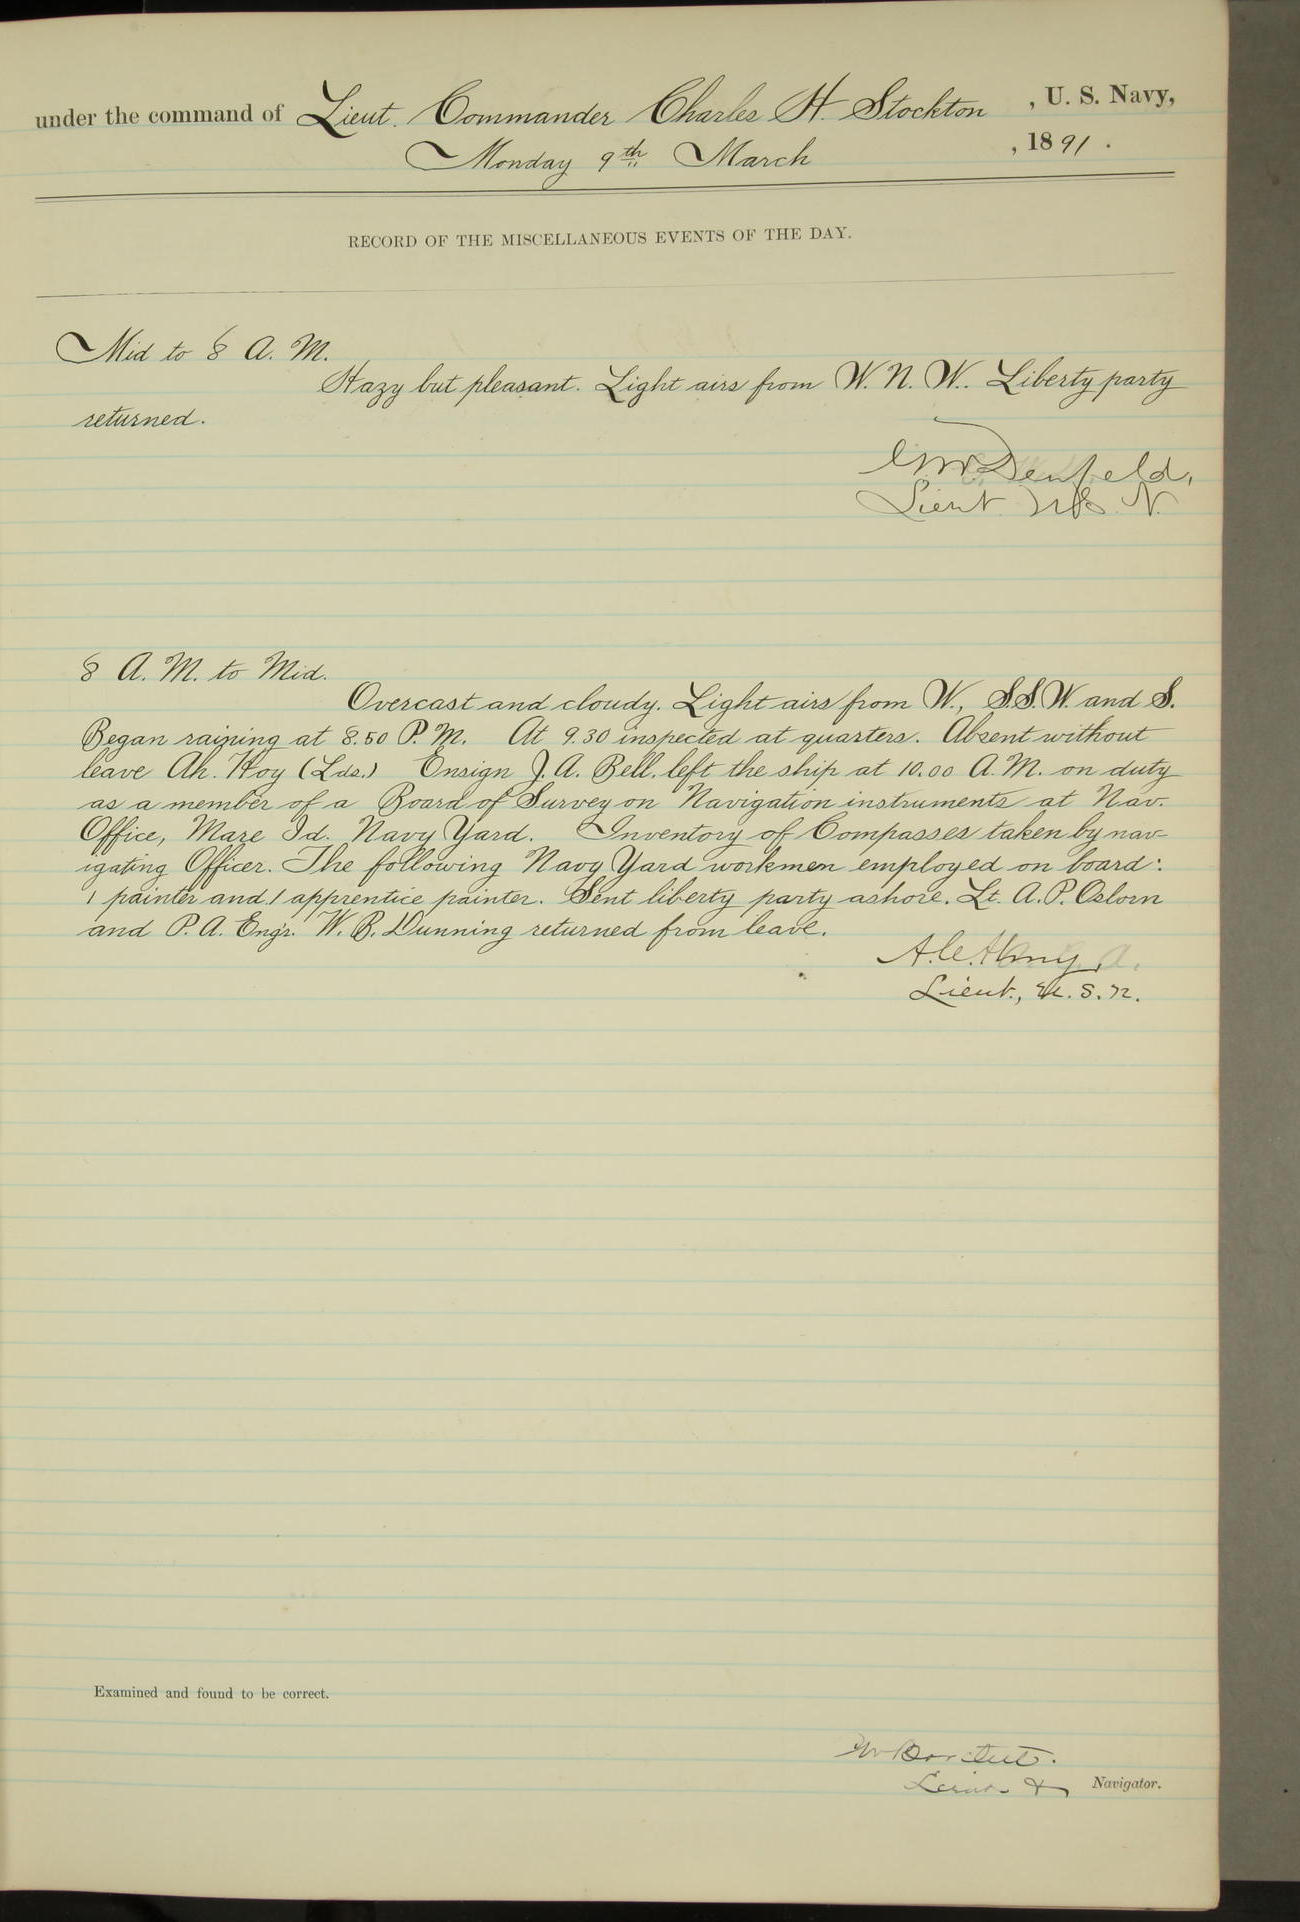 under the command of Lieut. Commander Charles H. Stockton, U. S. Navy,
Monday 9th March, 1891.
RECORD OF THE MISCELLANEOUS EVENTS OF THE DAY.
Mid to 8 A. M.
Hazy but pleasant. Light airs from W. N. W. Liberty party
returned.
Denfeld,
Lieut U.S. N.
8 A. M. to Mid.
Overcast and cloudy. Light airs from W., S.S.W. and S.
Began raining at 8.50 P. M. At 9.30 inspected at quarters. Absent without
leave Ah. Hoy (Lds.) Ensign J. A. Bell. left the ship at 10.00 A. M. on duty
as a member of a Board of Survey on Navigation instruments at Nav.
Office, Mare Id. Navy Yard. Inventory of Compasses taken by nav-
igating Officer. The following Navy Yard workmen employed on board:
1 painter and 1 apprentice painter. Sent liberty party ashore. Lt. A. P. Osborn
and P. A. Engr. W. B. Dunning returned from leave.
Lieut., U. S. N.
Examined and found to be correct.
Lieut. &
Navigator.